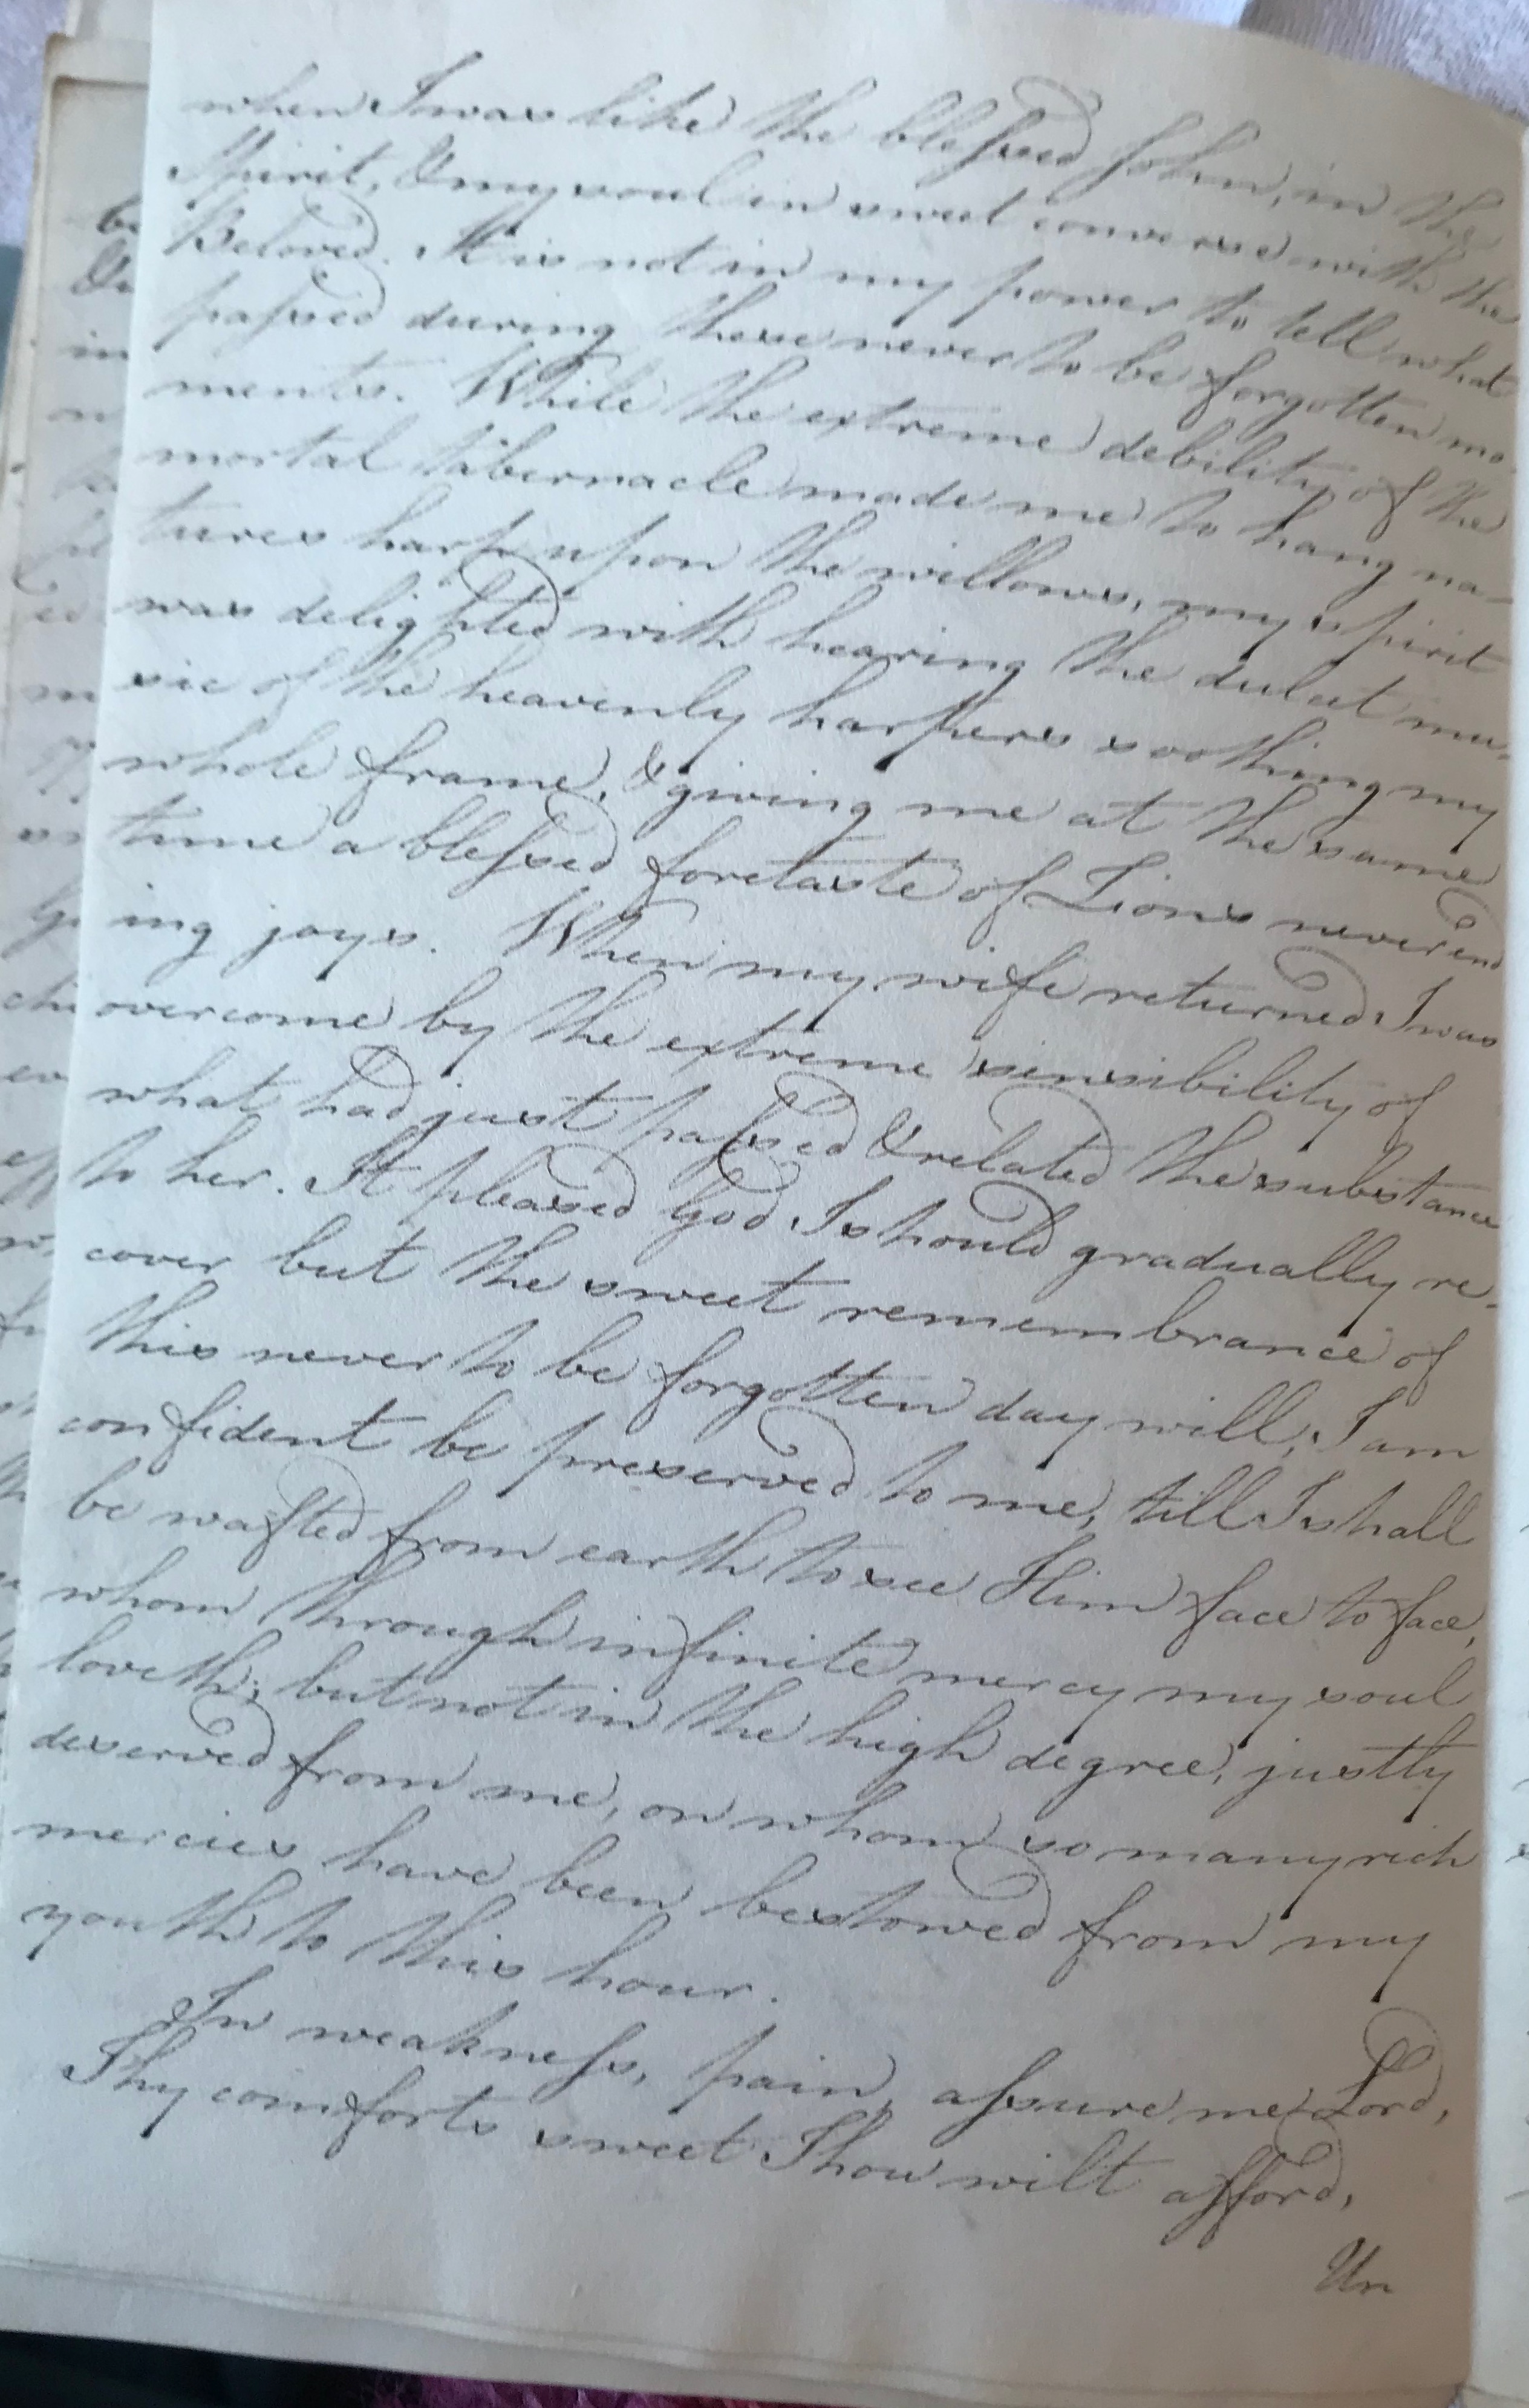 when I was like the blessed John, in the
Spirit, & my soul in sweet converse with the
Beloved. It is not in my power to tell what
passed during these never to be forgotten mo-
ments. While the extreme debility of the
mortal tabernacle made me to hang na-
tures harp upon the willows, my spirit
was delighted with hearing the dulcet mu-
sic of the heavenly harpers soothing my
whole frame, & giving me at the same
time a blessed foretaste of Zions never end
ing joys. When my wife returned I was
overcome by the extreme sensibility of
what had just passed & related the substance
to her. It pleased God I should gradually re-
cover but the sweet remembrance of
this never to be forgotten day will, I am
confident be preserved to me, till I shall
be wafted from earth to see Him face to face,
whom through infinite mercy my soul
loveth; but not in the high degree, justly
deserved from me, on whom so many rich
mercies have been bestowed from my
youth to this hour.
In weakness, pain, assure me Lord,
Thy comforts sweet Thou wilt afford,
Un